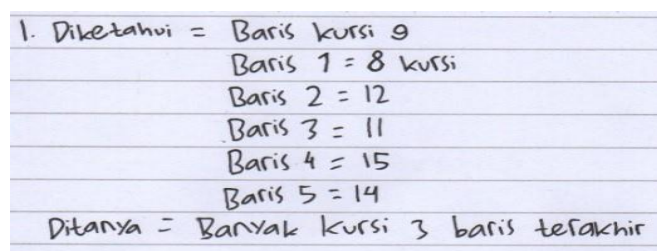 1. Diketahui = Baris kursi 9
Baris 1 = 8 kursi
Baris 2 = 12
Baris 3 = 11
Baris 4 = 15
Baris 5 = 14
Ditanya = Banyak kursi 3 baris terakhir